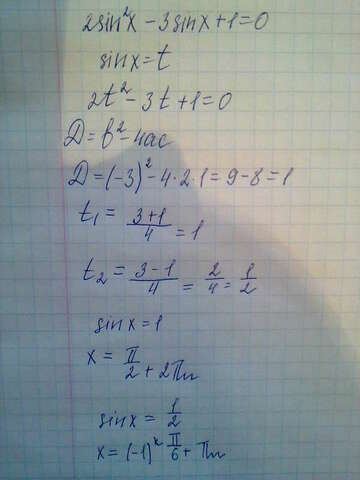 2sin²x - 3sinx + 1 = 0
sinx = t
2t² - 3t + 1 = 0
D = b² - 4ac
D = (-3)² - 4·2·1 = 9 - 8 = 1
t₁ = (3+1)/4 = 1
t₂ = (3-1)/4 = 2/4 = 1/2
sinx = 1
x = π/2 + 2πn
sinx = 1/2
x = (-1)ⁿ π/6 + πn